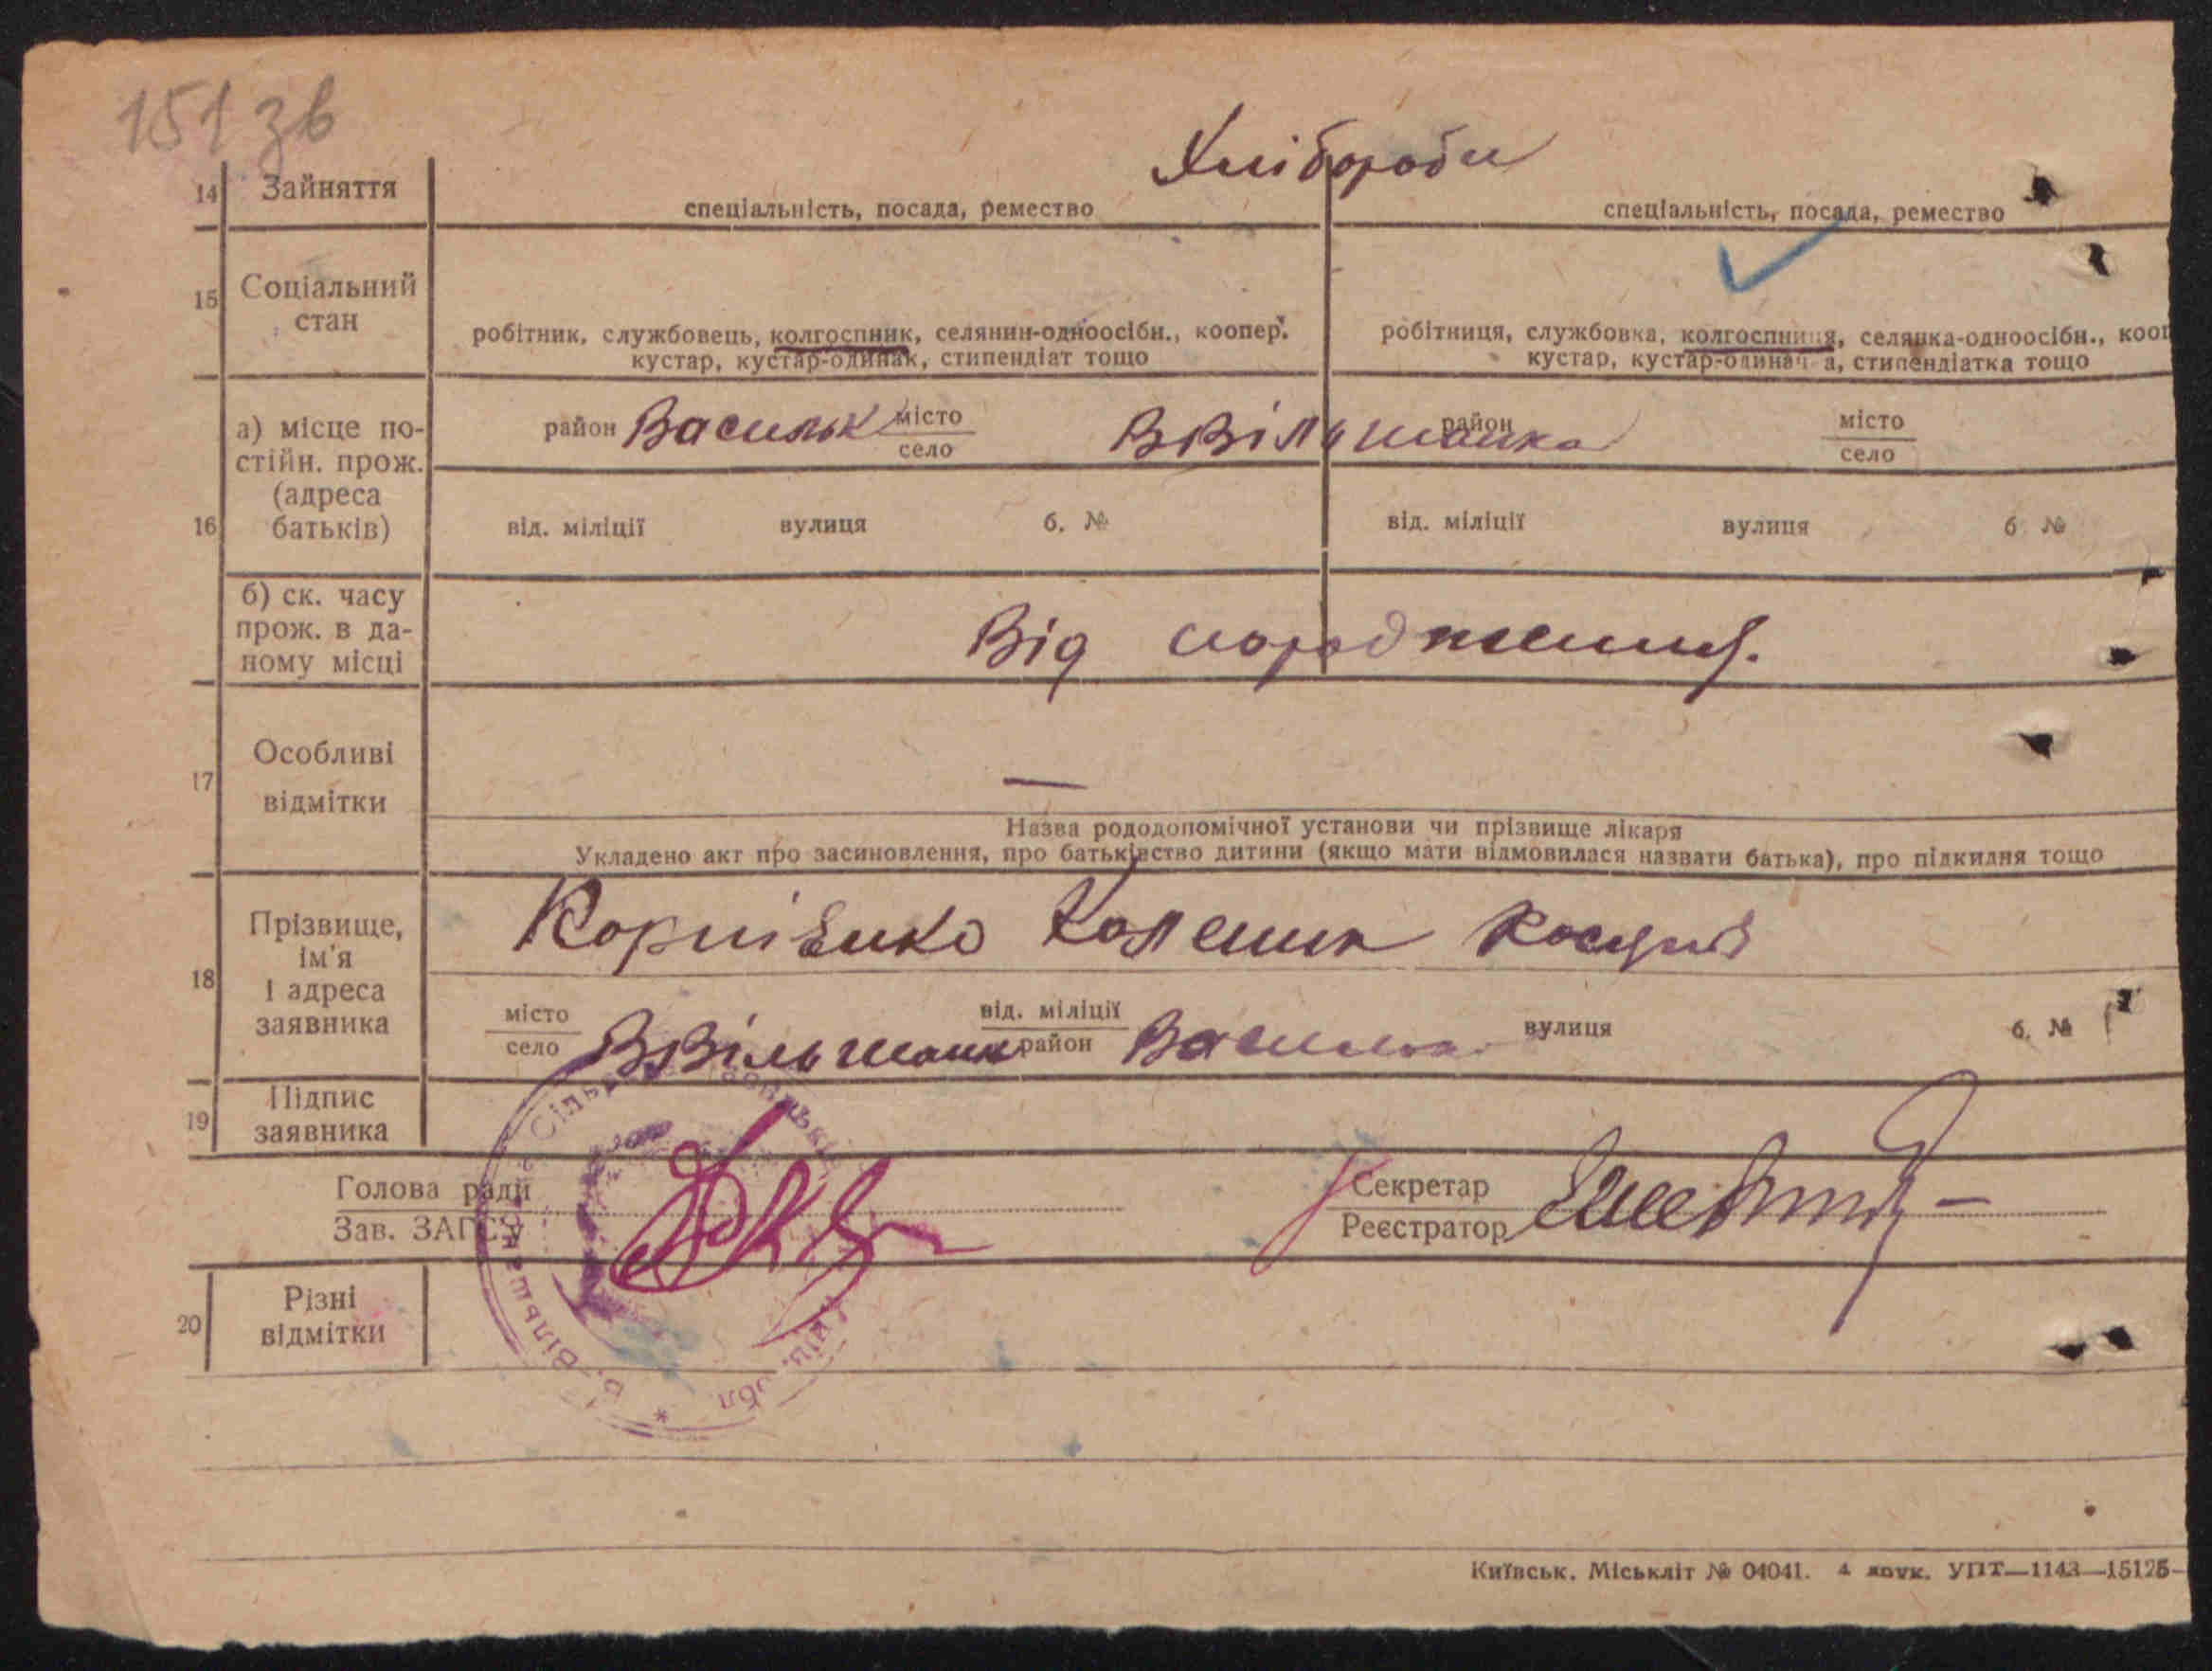 151 зв
Хлібороби
14 Зайняття
спеціальність, посада, ремество спеціальність, посада, ремество
15 Соціальний
стан
робітник, службовець, колгоспник, селянин-одноосібн., коопер. робітниця, службовка, колгоспниця, селянка-одноосібн., кооп
кустар, кустар-одинак, стипендіат тощо кустар, кустар-одинач а, стипендіатка тощо
16 а) місце по-
стійн. прож.
(адреса
батьків)
район Васильк місто В Вільшанка район місто
село село
від. міліції вулиця б. № від. міліції вулиця б №
б) ск. часу
прож. в да-
ному місці
Від породження.
17 Особливі
відмітки
—
Назва рододопомічної установи чи прізвище лікаря
Укладено акт про засиновлення, про батьківство дитини (якщо мати відмовилася назвати батька), про підкидня тощо
18 Прізвище,
ім'я
і адреса
заявника
Корнієнко
місто від. міліції вулиця б. №
село В Вільшанк район
19 Підпис
заявника
Голова ради Секретар
Зав. ЗАГСУ Реєстратор
20 Різні
відмітки
В. Вільшанська
обл.
Київськ. Міськліт № 04041. 4 друк. УПТ—1143—15125-